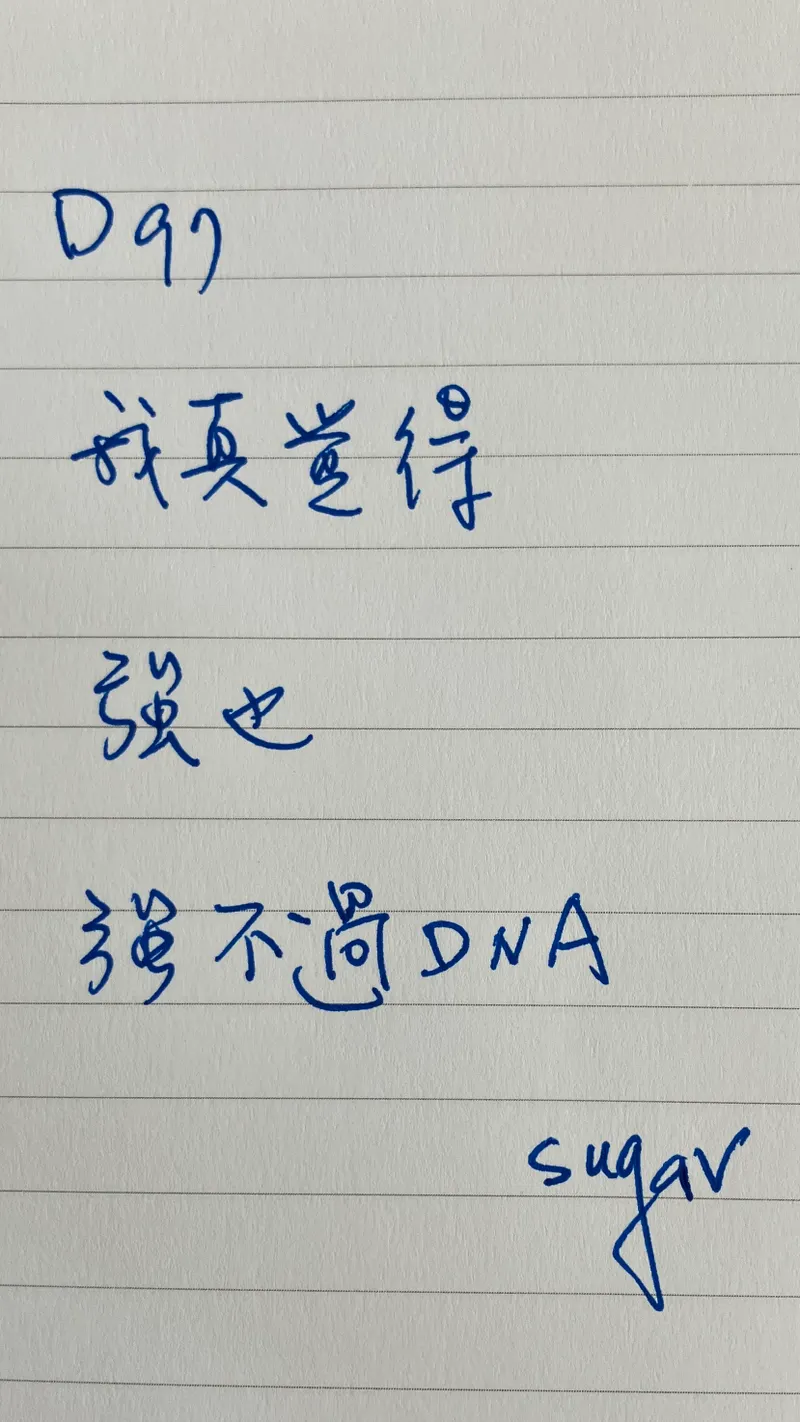 D97
我真觉得
强也
强不過DNA
sugar